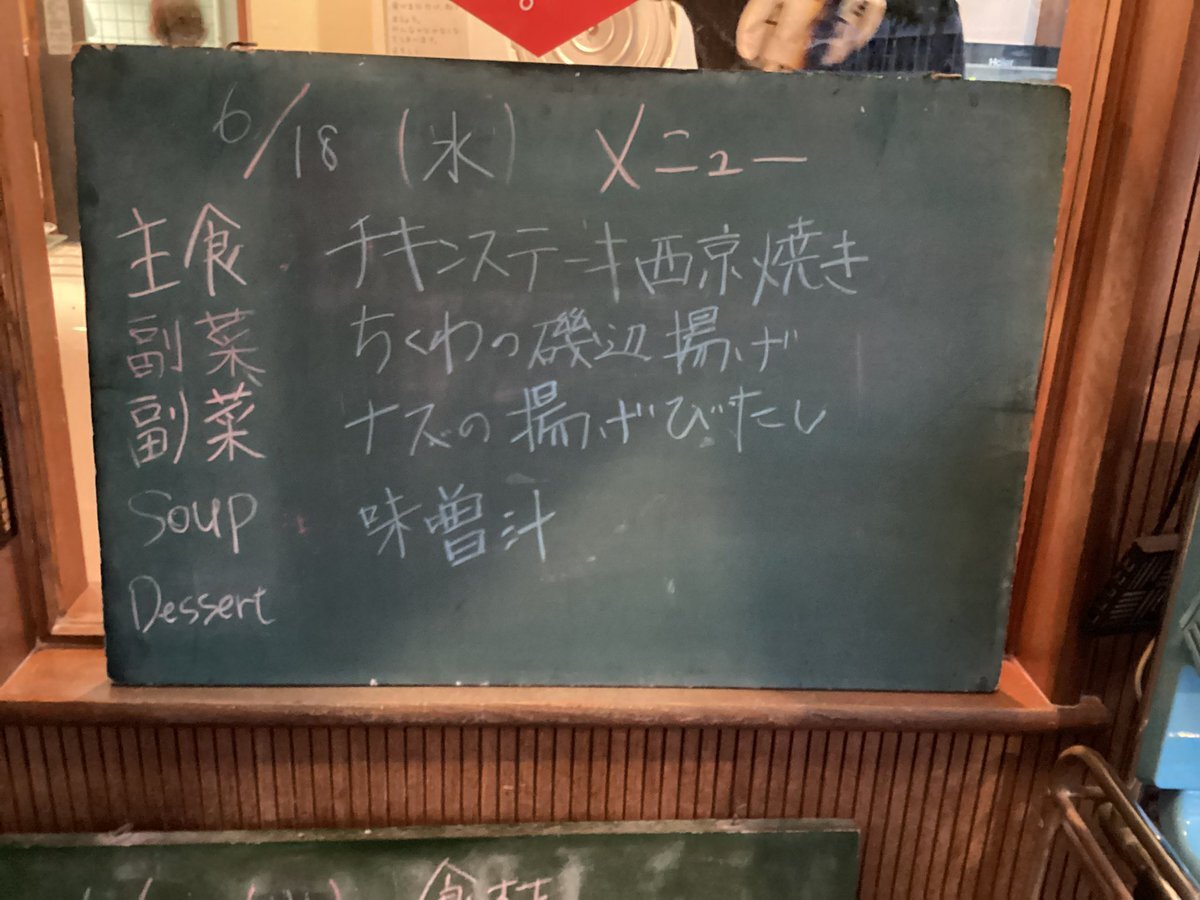 Haier
6/18 (水) メニュー
主食 チキンステーキ西京焼き
副菜 ちくわの磯辺揚げ
副菜 ナスの揚げびたし
Soup 味噌汁
Dessert